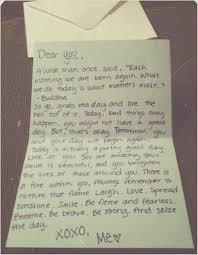 Dear you,
A wise man once said, "Each
morning we are born again. What
we do today is what matters most."
-Buddha
So go, grab ma day and live the
hell out of it. Today, bad things may
happen, you might not have a great
day. But, that's okay. Tomorrow, you
and your day will begin again.
Today is actually a pretty good day.
Look at you! you are amazing, your
smile is beautiful, and you brighten
the lives of those around you. There is a
fire within you, Always remember to
nurture that flame. Laugh. Love. Spread
sunshine. Smile. Be fierce and fearless.
Breathe. Be brave. Be strong. And seize
the day.
XOXO,
Me♡